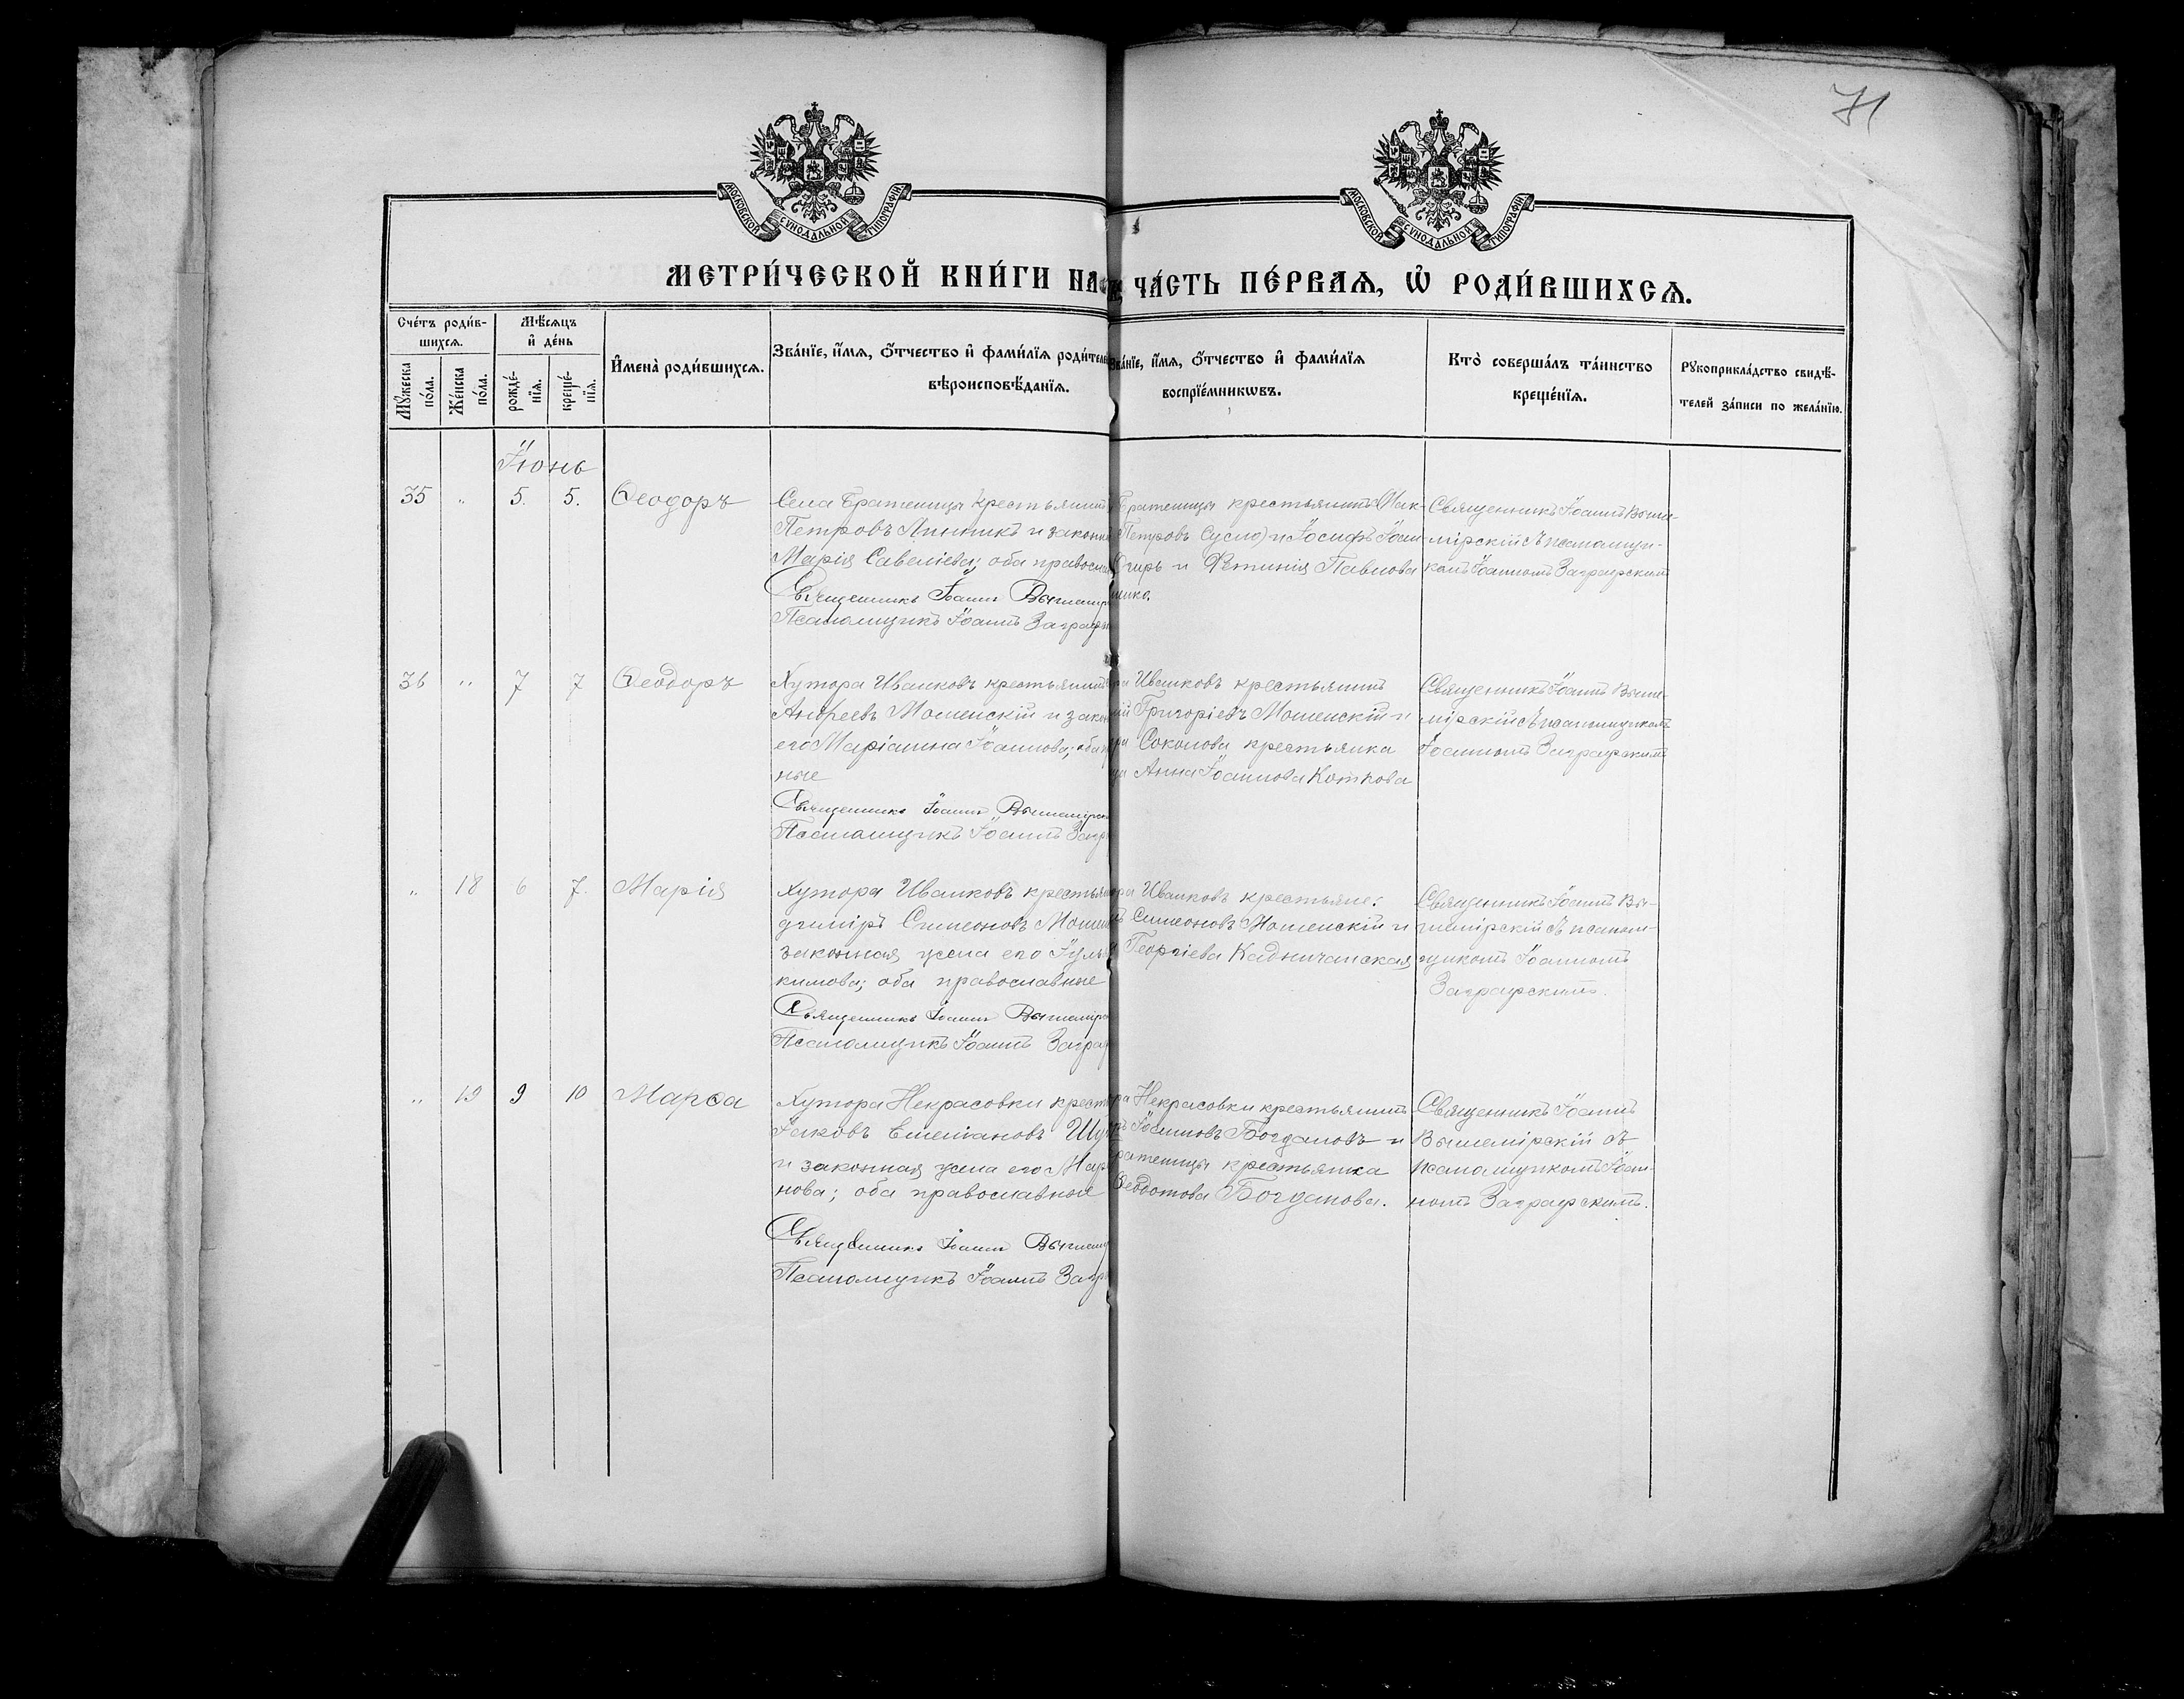 71
МОСКОВСКОЙ СѴНОДАЛЬНОЙ ТИПОГРАФІИ
МОСКОВСКОЙ СѴНОДАЛЬНОЙ ТИПОГРАФІИ
МЕТРИ́ЧЕСКОЙ КНИ́ГИ НА
ЧА́СТЬ ПЕ́РВАѦ, Ѡ҆ РОДИ́ВШИХСѦ.
Сче́тъ роди́в-
шихсѧ.
Мѣ́сѧцъ
и҆ де́нь
Мꙋ́жеска
по́ла.
Же́нска
по́ла.
рожде́-
нїѧ.
креще́-
нїѧ.
И҆мена̀ роди́вшихсѧ.
Зва́нїе, и҆́мѧ, ѻ҆́тчество и҆ фами́лїѧ роди́теле
вѣроисповѣ́данїѧ.
Зва́нїе, и҆́мѧ, ѻ҆́тчество и҆ фами́лїѧ
воспрїе́мникѡвъ.
Кто̀ соверша́лъ та́инство
креще́нїѧ.
Рꙋкоприкла́дство свидѣ́-
телей за́писи по жела́нїю.
Іюнь
35 " 5. 5. Ѳеодоръ
Села Братеницы крестьянинъ
Петровъ Линникъ и законн
Марія Савеліева; оба правосла
Священникъ Іоаннъ Вышемір
Псаломщикъ Іоаннъ Заграфс
Братеницы крестьянинъ Мак-
Петровъ Сусло) и Іосифъ Іоан-
Огирь и Фетинія Павлова
енко.
Священникъ Іоаннъ Выше-
мірскій съ псаломщи-
комъ Іоанномъ Заграфскимъ
36 " 7 7 Ѳеодоръ
Хутора Иванковъ крестьянинъ
Андреевъ Мошенскій и закон
его Маріанна Іоаннова; оба п
ные
Священникъ Іоаннъ Вышемірск
Псаломщикъ Іоаннъ Загр
ра Иванковъ крестьянинъ
ій Григоріевъ Мошенскій и
ра Соколова крестьянка
ца Анна Іоаннова Коткова
Священникъ Іоаннъ Выше-
мірскій съ псаломщикомъ
Іоанномъ Заграфскимъ
" 18 6 7. Марія
Хутора Иванковъ крестьян
диміръ Симеоновъ Мошен
законная жена его Іулі
кимова; оба православные
Священникъ Іоаннъ Вышемірс
Псаломщикъ Іоаннъ Заграф
ра Иванковъ крестьяне:
ъ Симеоновъ Мошенскій и
Георгіева Кадничанская
Священникъ Іоаннъ Вы-
шемірскій съ псалом-
щикомъ Іоанномъ
Заграфскимъ.
" 19 9 10 Марѳа
Хутора Некрасовки крест
Іаковъ Емеліановъ Шу
и законная жена его Мар
нова; оба православные
Священникъ Іоаннъ Вышемі
Псаломщикъ Іоаннъ Загр
ра Некрасовки крестьянинъ
Іоанновъ Богдановъ и
ратеницы крестьянка
Ѳеодотова Богданова.
Священникъ Іоаннъ
Вышемірскій съ
псаломщикомъ Іоан-
номъ Заграфскимъ.